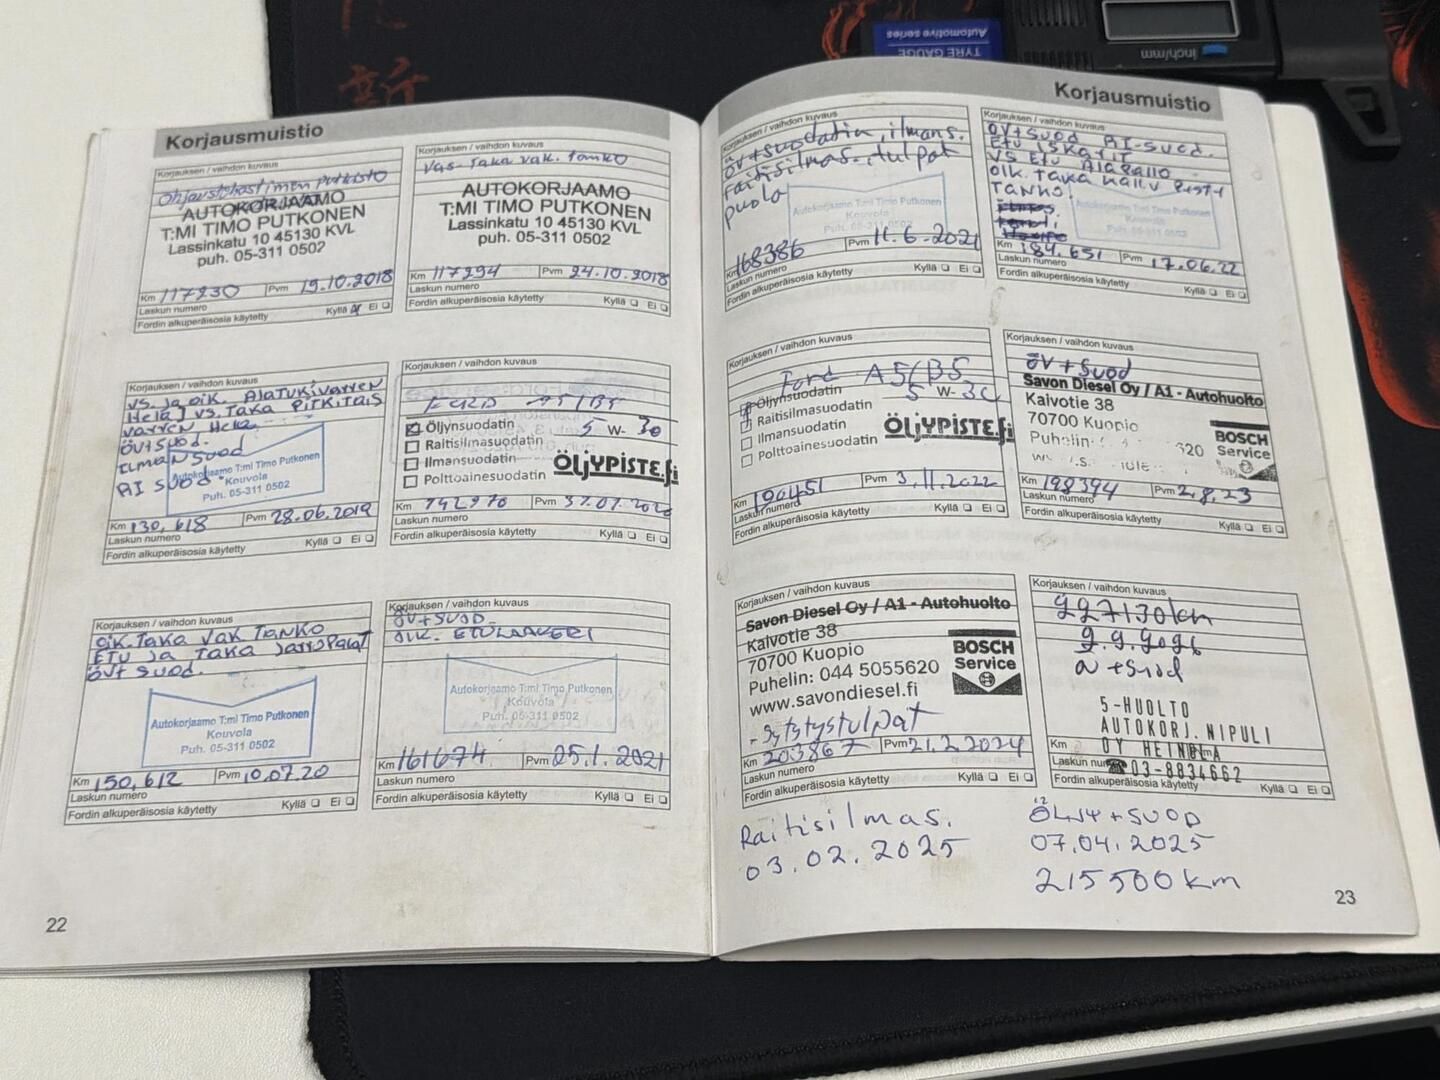 TYRE GAUGE
Automotive series
inch/mm
Korjausmuistio
Korjauksen / vaihdon kuvaus
Ohjaustehostimen putkisto
AUTOKORJAAMO
T:MI TIMO PUTKONEN
Lassinkatu 10 45130 KVL
puh. 05-311 0502
Km 117230 Pvm 19.10.2018
Laskun numero
Fordin alkuperäisosia käytetty Kyllä Ei
Korjauksen / vaihdon kuvaus
Vas-Taka vak. tanko
AUTOKORJAAMO
T:MI TIMO PUTKONEN
Lassinkatu 10 45130 KVL
puh. 05-311 0502
Km 117294 Pvm 24.10.2018
Laskun numero
Fordin alkuperäisosia käytetty Kyllä Ei
Korjauksen / vaihdon kuvaus
VS. Ja oik. ALATUKIVARREN
HeLa J VS. TAKA PITKITAIS
VarreN, HeLa
ÖV+SUOD.
ILMAN SUOD
AI SUOD.
Autokorjaamo T:mi Timo Putkonen
Kouvola
Puh. 05-311 0502
Km 130,618 Pvm 28.06.2019
Laskun numero
Fordin alkuperäisosia käytetty Kyllä Ei
Korjauksen / vaihdon kuvaus
FORD A5/B5
Öljynsuodatin 5 W- 30
Raitisilmasuodatin
Ilmansuodatin
Polttoainesuodatin
ÖLJYPISTE.fi
Km 142970 Pvm
Laskun numero
Fordin alkuperäisosia käytetty Kyllä Ei
Korjauksen / vaihdon kuvaus
OIK. TAKA VAK TANKO
ETU Ja TAKA JarruPALAT
ÖV+ SUOD.
Autokorjaamo T:mi Timo Putkonen
Kouvola
Puh. 05-311 0502
Km 150,612 Pvm 10.07.20
Laskun numero
Fordin alkuperäisosia käytetty Kyllä Ei
Korjauksen / vaihdon kuvaus
ÖV+SUOD.
OIK. ETULAAKERI
Autokorjaamo T:mi Timo Putkonen
Kouvola
Puh. 05-311 0502
Km 161674 Pvm 25.1.2021
Laskun numero
Fordin alkuperäisosia käytetty Kyllä Ei
22
Korjausmuistio
Korjauksen / vaihdon kuvaus
öv+suodatin, ilmans.
raitisilmas. tulpat
puola
Autokorjaamo T:mi Timo Putkonen
Kouvola
Puh. 05-311 0502
Km 168386 Pvm 11.6.2021
Laskun numero
Fordin alkuperäisosia käytetty Kyllä Ei
Korjauksen / vaihdon kuvaus
ÖV+SUOD AI-SUOD.
ETU ISKARIT
VS ETU ALAPALLO
OIK. TAKA KALLV PISTI
TANKO.
Autokorjaamo T:mi Timo Putkonen
Kouvola
Puh. 05-311 0502
Km 184,651 Pvm 17.06.22
Laskun numero
Fordin alkuperäisosia käytetty Kyllä Ei
Korjauksen / vaihdon kuvaus
Ford A5/B5
Öljynsuodatin 5 W- 30
Raitisilmasuodatin
Ilmansuodatin
Polttoainesuodatin
ÖLJYPISTE.fi
Km 190451 Pvm 3.11.2022
Laskun numero
Fordin alkuperäisosia käytetty Kyllä Ei
Korjauksen / vaihdon kuvaus
ÖV+Suod
Savon Diesel Oy / A1 - Autohuolto
Kaivotie 38
70700 Kuopio
Puhelin: 620
BOSCH
Service
Km 198394 Pvm 2.8.23
Laskun numero
Fordin alkuperäisosia käytetty Kyllä Ei
Korjauksen / vaihdon kuvaus
Savon Diesel Oy / A1 - Autohuolto
Kaivotie 38
70700 Kuopio
Puhelin: 044 5055620
www.savondiesel.fi
BOSCH
Service
- Sytytystulpat
Km 203867 Pvm 21.2.2024
Laskun numero
Fordin alkuperäisosia käytetty Kyllä Ei
Korjauksen / vaihdon kuvaus
227130km
+Suod
5-HUOLTO
AUTOKORJ. NIPULI
OY HEINOLA
☎03-8834662
Km
Laskun numero
Fordin alkuperäisosia käytetty Kyllä Ei
Raitisilmas.
03.02.2025
ÖLJY+SUOD
07.04.2025
215500km
23